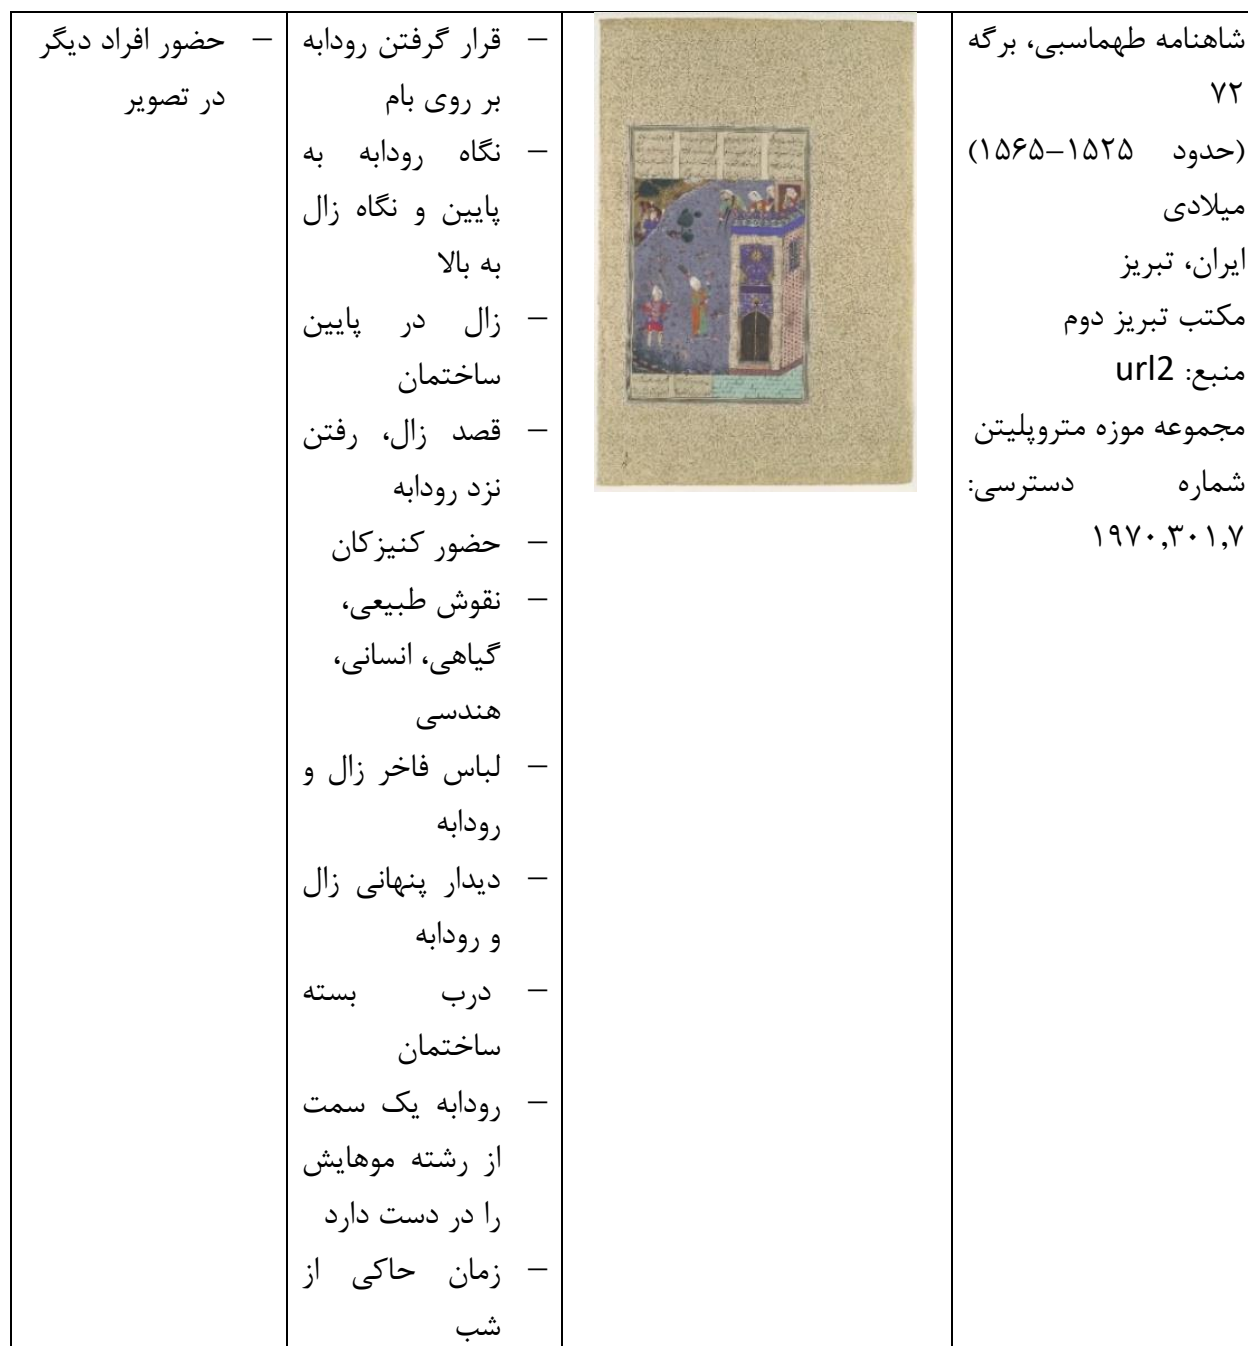 شاهنامه طهماسبی، برگه
۷۲
(حدود ۱۵۲۵-۱۵۶۵)
میلادی
ایران، تبریز
مکتب تبریز دوم
منبع: url2
مجموعه موزه متروپلیتن
شماره دسترسی:
۱۹۷۰,۳۰۱,۷
– قرار گرفتن رودابه
بر روی بام
– نگاه رودابه به
پایین و نگاه زال
به بالا
– زال در پایین
ساختمان
– قصد زال، رفتن
نزد رودابه
– حضور کنیزکان
– نقوش طبیعی،
گیاهی، انسانی،
هندسی
– لباس فاخر زال و
رودابه
– دیدار پنهانی زال
و رودابه
– درب بسته
ساختمان
– رودابه یک سمت
از رشته موهایش
را در دست دارد
– زمان حاکی از
شب
– حضور افراد دیگر
در تصویر